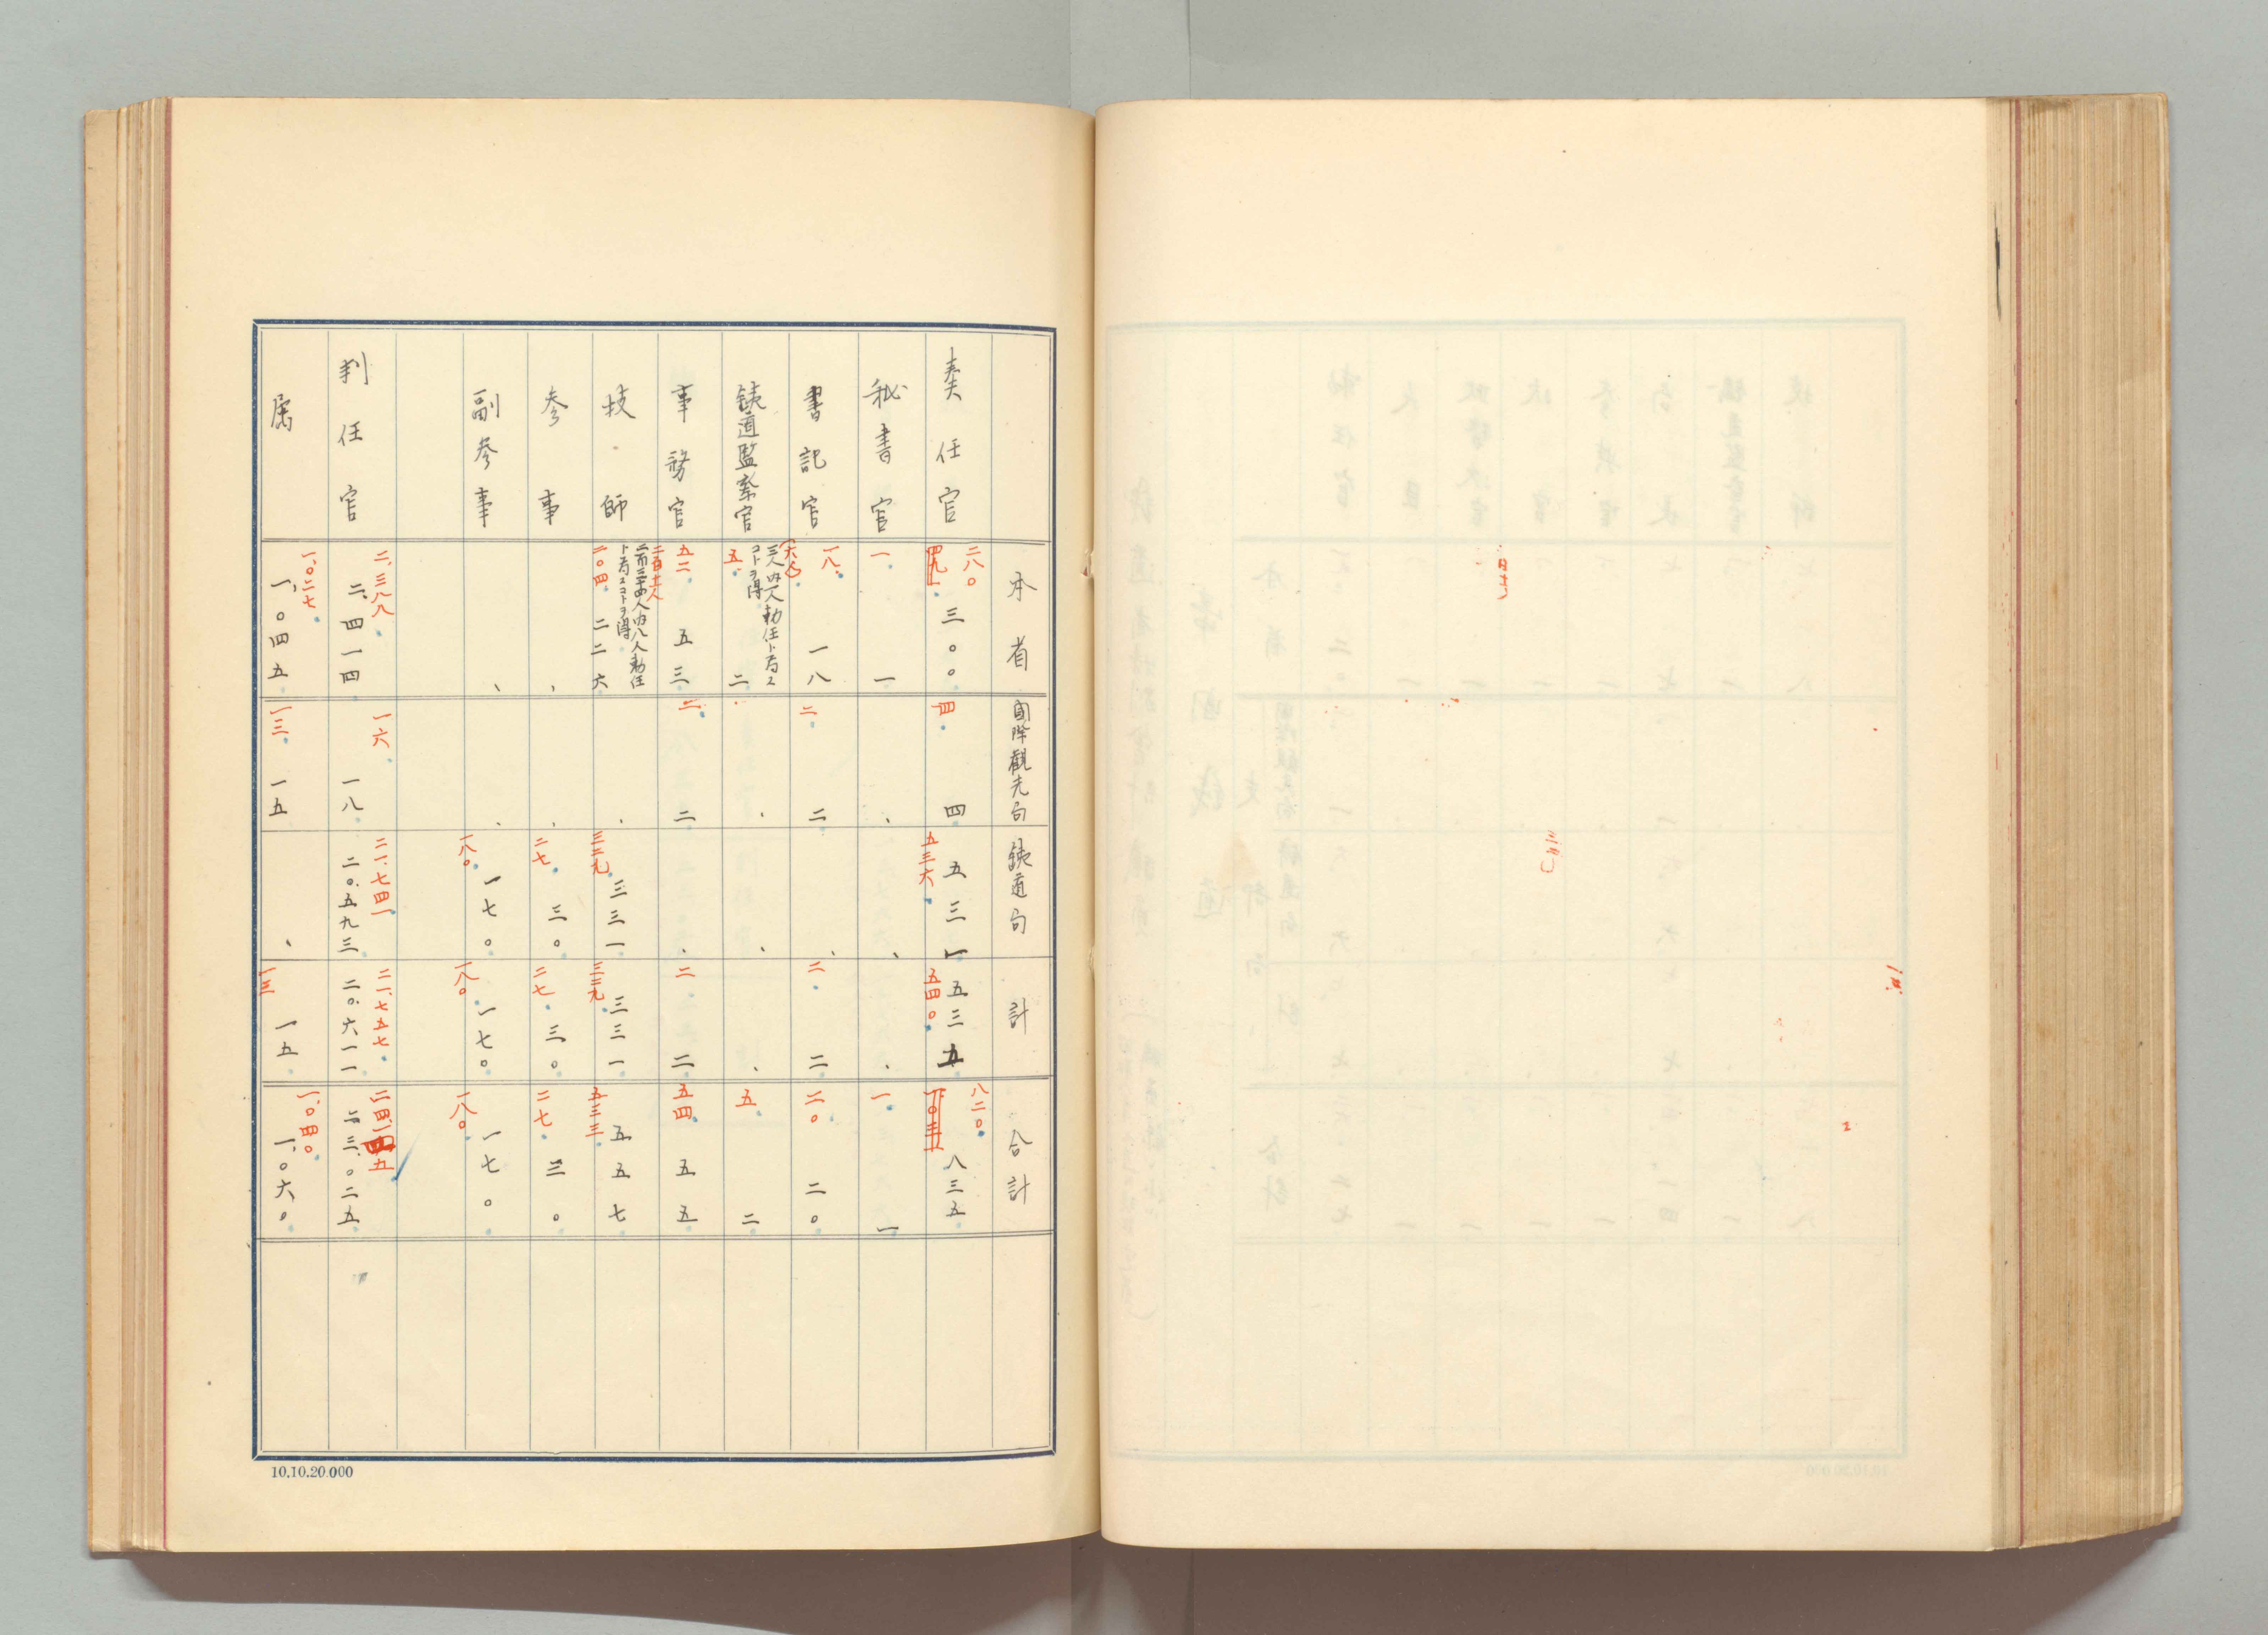 本省
国際観光局
鉄道局
計
合計
奏任官
二八〇
三〇〇
四
四
五三六
五三一
五四〇
五三五
八二〇
八三五
秘書官
一
一
一
一
書記官
一八
一八
二
二
二
二
二〇
二〇
鉄道監察官
三人内一人勅任ト為ス
コトヲ得
五
二
五
二
事務官
五二
五三
二
二
二
二
五四
五五
技師
二百三十四人内八人勅任
ト為スコトヲ得
二〇四
二二六
三二九
三三一
三二九
三三一
五三三
五五七
参事
二七
三〇
二七
三〇
二七
三〇
副参事
一八〇
一七〇
一八〇
一七〇
一八〇
一七〇
判任官
二、三八八
二、四一四
一六
一八
二一、七四一
二〇、五九三
二一、七五七
二〇、六一一
二三、〇二五
属
一、〇二七
一、〇四五
一三
一五
一三
一五
一、〇四〇
一、〇六〇
10.10.20.000